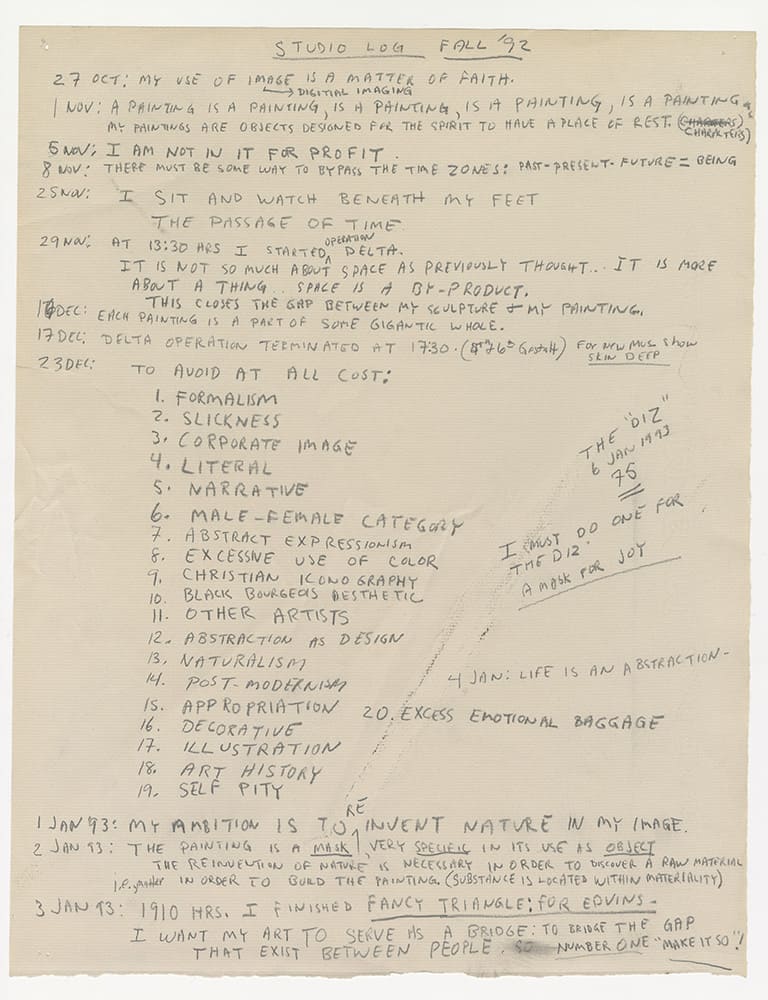 STUDIO LOG FALL '92
27 OCT: MY USE OF IMAGE IS A MATTER OF FAITH.
→ DIGITIAL IMAGING
1 NOV: A PAINTING IS A PAINTING, IS A PAINTING, IS A PAINTING, IS A PAINTING
MY PAINTINGS ARE OBJECTS DESIGNED FOR THE SPIRIT TO HAVE A PLACE OF REST. (CHARACTERS)
5 NOV: I AM NOT IN IT FOR PROFIT.
8 NOV: THERE MUST BE SOME WAY TO BYPASS THE TIME ZONES: PAST-PRESENT-FUTURE = BEING
25 NOV: I SIT AND WATCH BENEATH MY FEET
THE PASSAGE OF TIME
29 NOV: AT 13:30 HRS I STARTED OPERATION DELTA.
IT IS NOT SO MUCH ABOUT SPACE AS PREVIOUSLY THOUGHT... IT IS MORE
ABOUT A THING.. SPACE IS A BY-PRODUCT.
THIS CLOSES THE GAP BETWEEN MY SCULPTURE & MY PAINTING.
DEC: EACH PAINTING IS A PART OF SOME GIGANTIC WHOLE.
17 DEC: DELTA OPERATION TERMINATED AT 17:30. FOR NEW MUS. SHOW
SKIN DEEP
23 DEC: TO AVOID AT ALL COST:
1. FORMALISM
2. SLICKNESS
3. CORPORATE IMAGE
4. LITERAL
5. NARRATIVE
6. MALE-FEMALE CATEGORY
7. ABSTRACT EXPRESSIONISM
8. EXCESSIVE USE OF COLOR
9. CHRISTIAN ICONOGRAPHY
10. BLACK BOURGEOIS AESTHETIC
11. OTHER ARTISTS
12. ABSTRACTION AS DESIGN
13. NATURALISM
14. POST-MODERNISM
15. APPROPRIATION
16. DECORATIVE
17. ILLUSTRATION
18. ART HISTORY
19. SELF PITY
20. EXCESS EMOTIONAL BAGGAGE
THE "DIZ"
6 JAN 1993
75
I MUST DO ONE FOR
THE DIZ.
A MASK FOR JOY
4 JAN: LIFE IS AN ABSTRACTION-
1 JAN '93: MY AMBITION IS TO RE INVENT NATURE IN MY IMAGE.
2 JAN 93: THE PAINTING IS A MASK, VERY SPECIFIC IN ITS USE AS OBJECT
THE REINVENTION OF NATURE IS NECESSARY IN ORDER TO DISCOVER A RAW MATERIAL
i.e. matter IN ORDER TO BUILD THE PAINTING. (SUBSTANCE IS LOCATED WITHIN MATERIALITY)
3 JAN 93: 1910 HRS. I FINISHED FANCY TRIANGLE: FOR EDVINS-
I WANT MY ART TO SERVE AS A BRIDGE: TO BRIDGE THE GAP
THAT EXIST BETWEEN PEOPLE. SO NUMBER ONE "MAKE IT SO"!